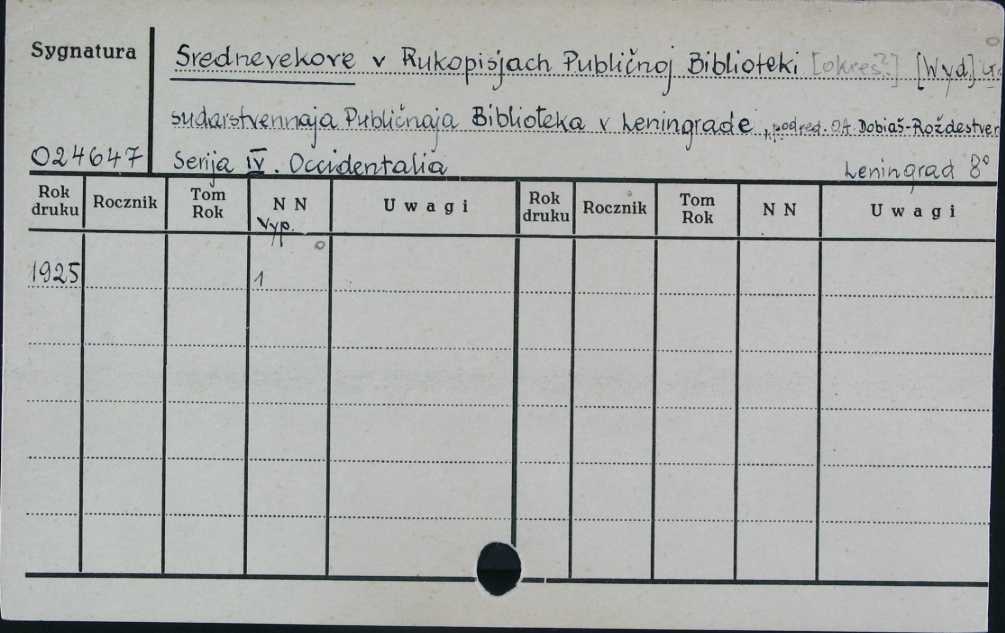 Sygnatura
Srednevekove v Rukopisjach Publičnoj Biblioteki [okres?] [Wyd]
sudarstvennaja Publičnaja Biblioteka v Leningrade, pod red. O.A. Dobiaš-Roždestven
024647 Serija IV. Occidentalia Leningrad 8°
Rok druku Rocznik Tom Rok N N Uwagi Rok druku Rocznik Tom Rok N N Uwagi
Vyp.
1925 1